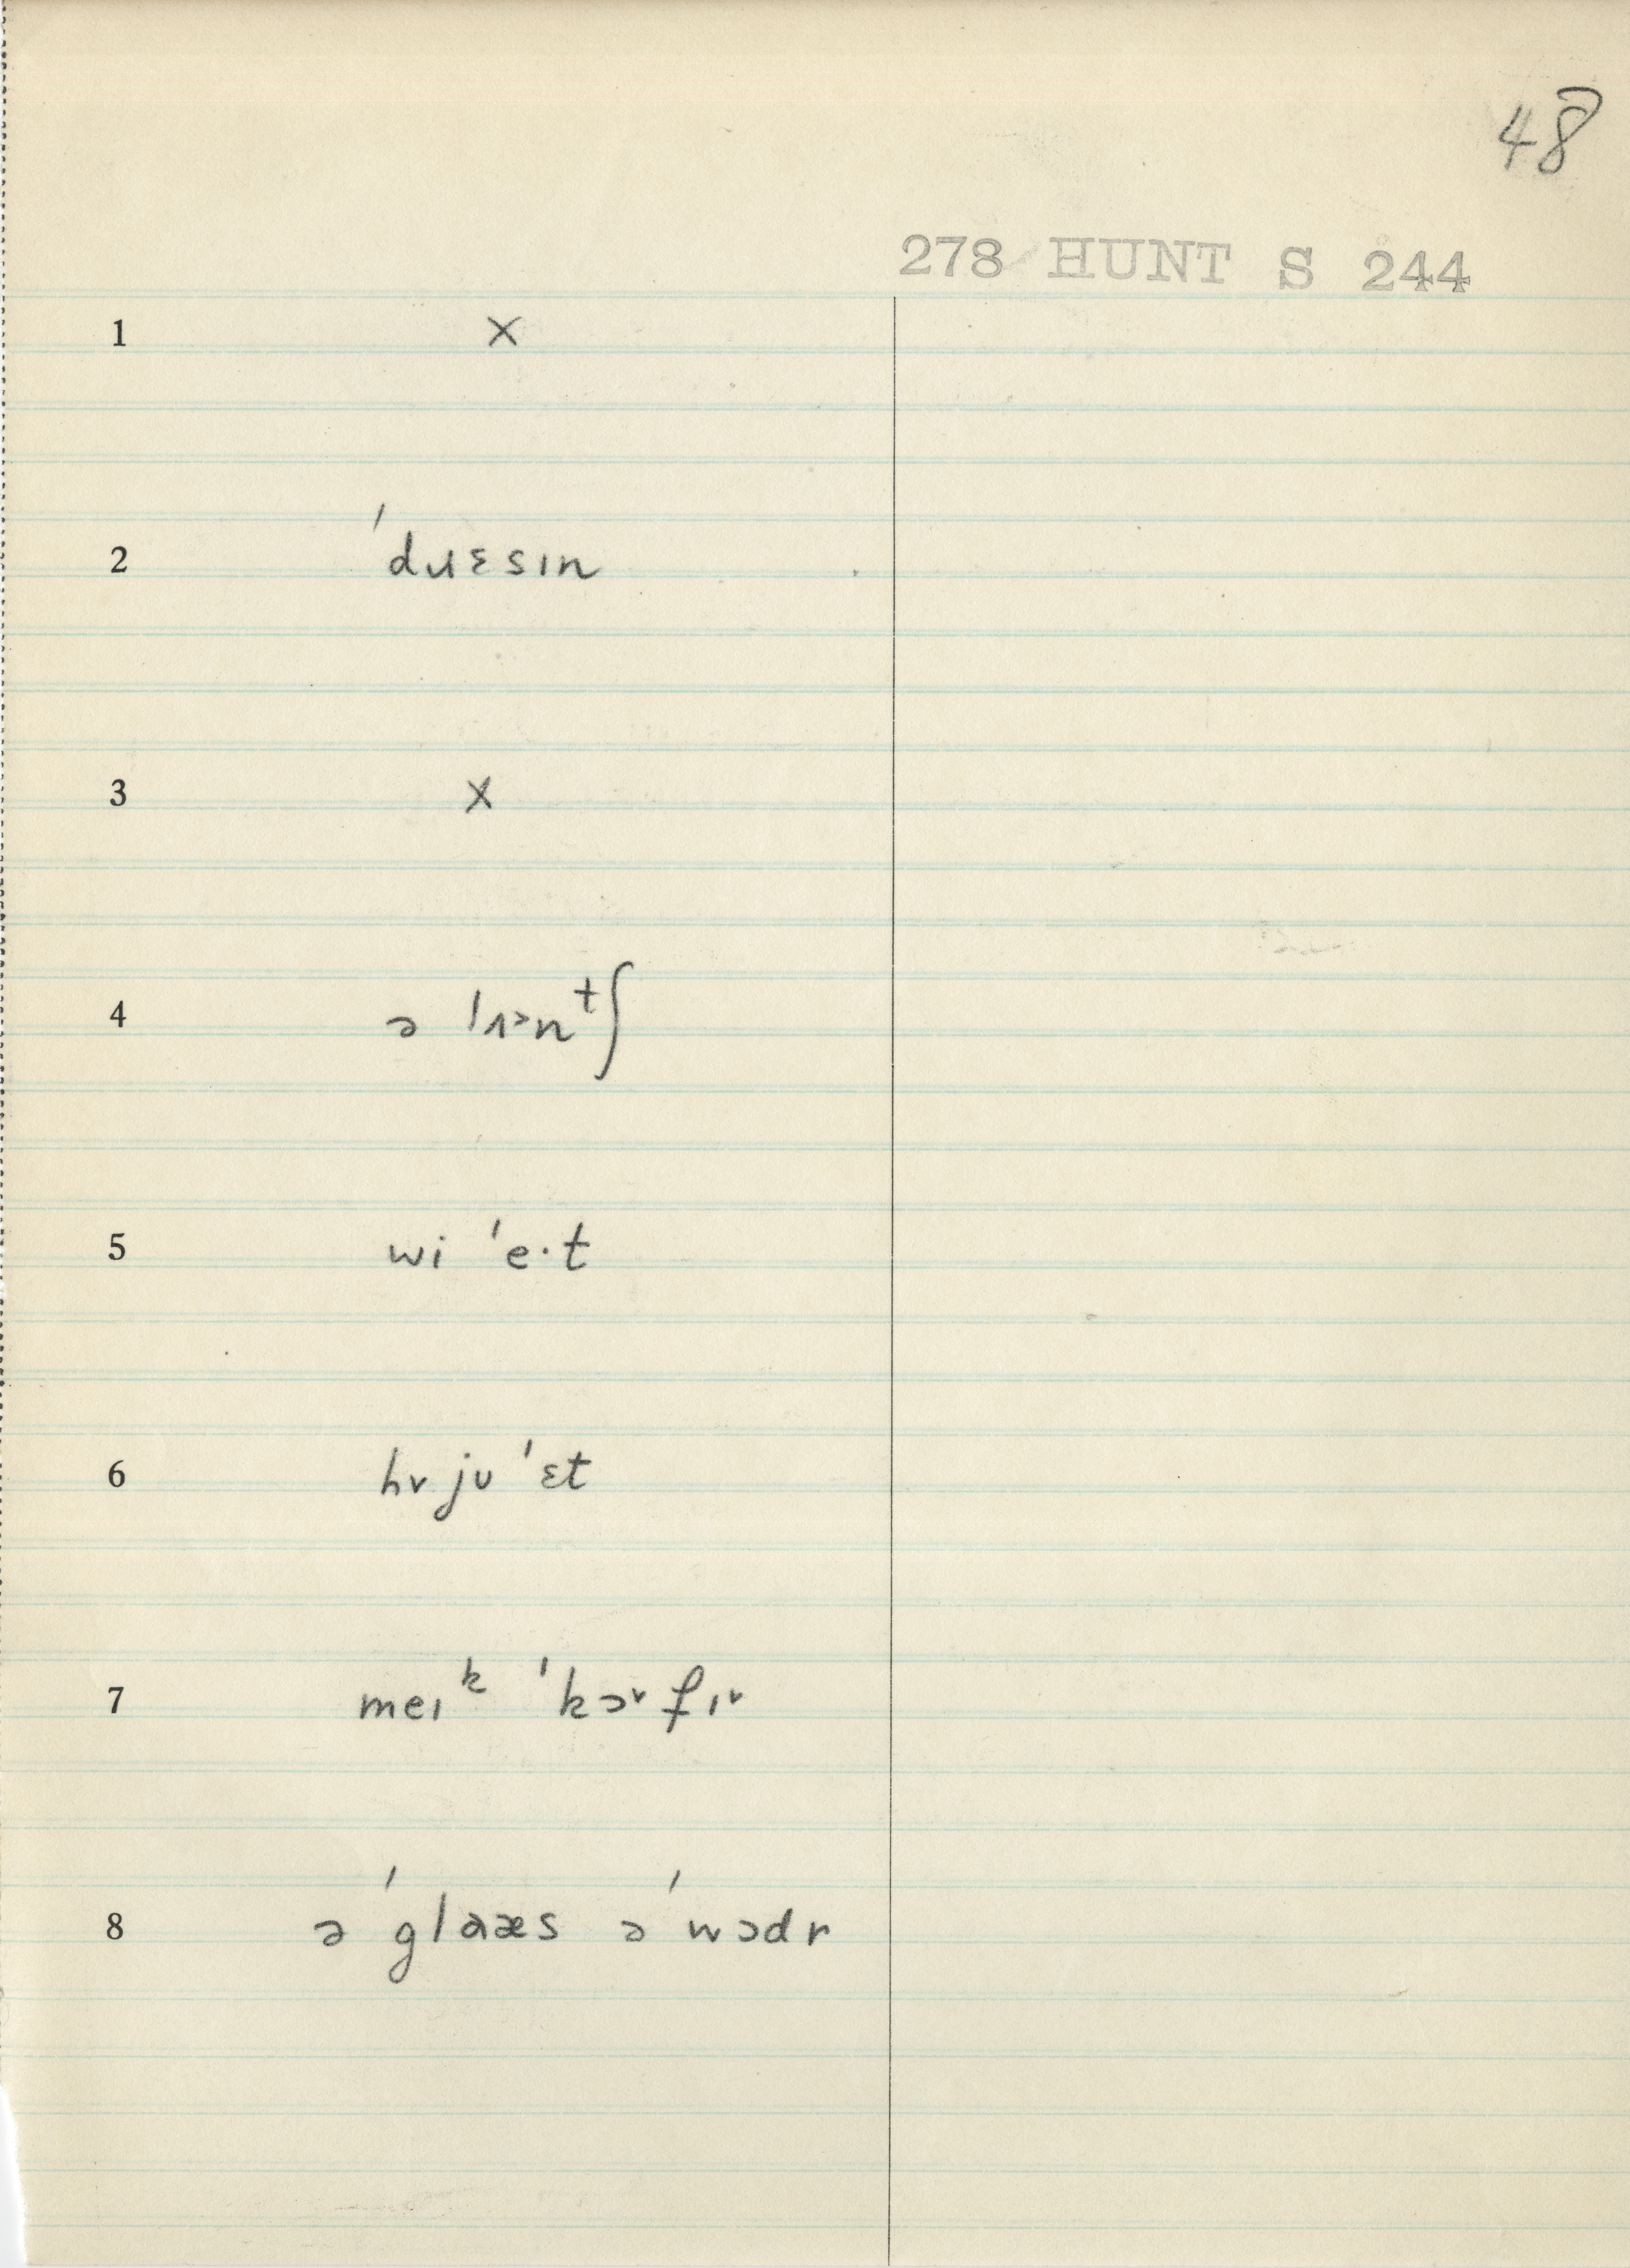 48
278 HUNT S 244
1 ×
2 ˈdɹɛsɪn
3 ×
4 ə ˈlʌ˃nᵗʃ
5 wi ˈe·t
6 hv ju ˈɛt
7 meɪᵏ ˈkɔ˅fɪ˅
8 ə ˈglaæs ə ˈwɔdr